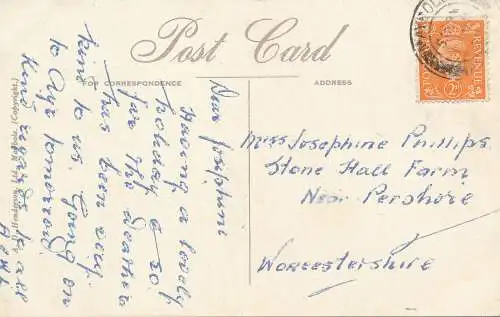 Post Card
FOR CORRESPONDENCE
ADDRESS
POSTAGE
REVENUE
Dear Josephine
Having a lovely
holiday & so
far the weather
has been very
kind to us. Going on
to Ayr tomorrow.
Kind regards to all
Miss Josephine Phillips
Stone Hall Farm
Near Pershore
Worcestershire
(Copyright.)